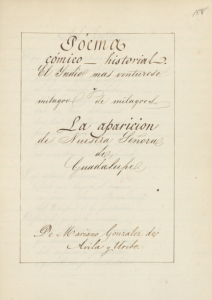 Poema
cómico_historial_
El Indio mas venturoso
y
milagro de milagros.
La aparicion
de Nuestra Señora
de
Guadalupe
De Mariano Gonzalez de
Avila y Uribe